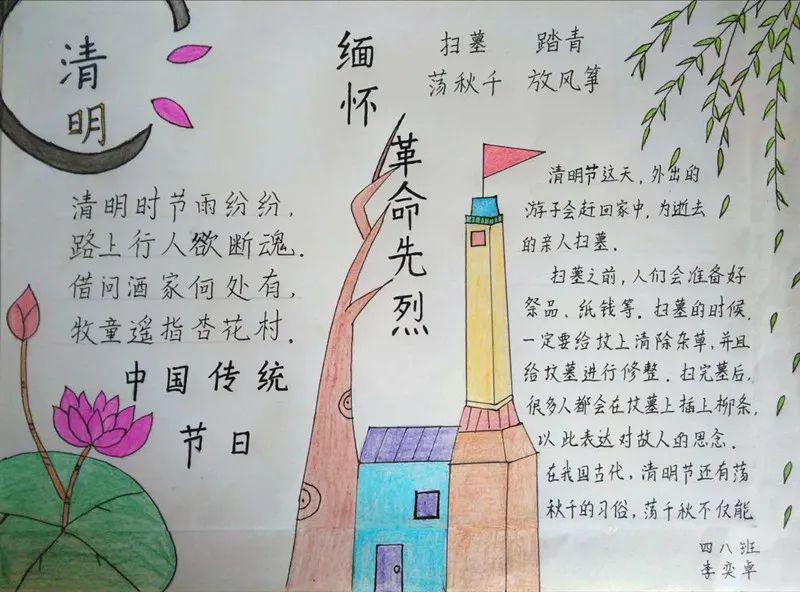 清明
缅怀
革命先烈
扫墓 踏青
荡秋千 放风筝
清明时节雨纷纷,
路上行人欲断魂.
借问酒家何处有,
牧童遥指杏花村.
中国传统
节日
清明节这天,外出的
游子会赶回家中,为逝去
的亲人扫墓.
扫墓之前,人们会准备好
祭品、纸钱等.扫墓的时候,
一定要给坟上清除杂草,并且
给坟墓进行修整.扫完墓后,
很多人都会在坟墓上插上柳条,
以此表达对故人的思念.
在我国古代,清明节还有荡
秋千的习俗,荡千秋不仅能
四八班
李奕卓